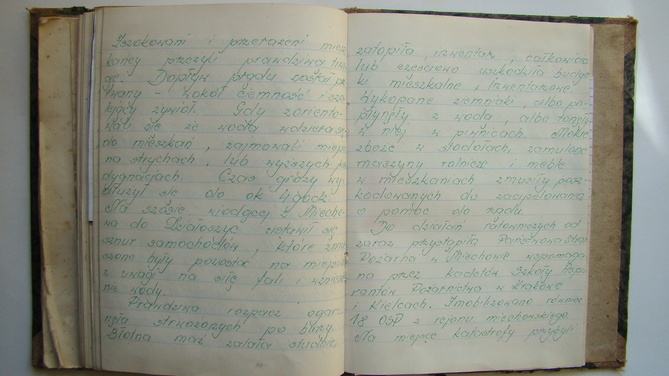 Zszokowani i przerażeni miesz
kańcy przeżyli prawdziwą
gę. Dopływ prądu został
rwany - wokół ciemność i
żywioł. Gdy zoriento-
wali się że woda wdziera
do mieszkań, zajmowali miejs
na strychach, lub wyższych
kondygnacjach. Czas grozy wy
dłużył się do ok 4 godz.
Na szosie wiodącej z Miecho-
wa do Działoszyc ustawił się
sznur samochodów, które zmu
szone były pozostać na miejscu
z uwagi na siłę fali i
nie wody.
Prawdziwa rozpacz ogar-
nęła strwożonych po burzy.
Błotna maź zalała studnie
zatopiła inwentarz, całkowicie
lub częściowo uszkodziła budyn
ki mieszkalne, inwentarskie.
Wykopane ziemniaki, albo po-
płynęły z wodą, albo
w niej w piwnicach. Mokre
zboże w stodołach, zamulone
maszyny rolnicze i meble
w mieszkaniach zmusiły posz-
kodowanych do zaapelowania
o pomoc do rządu.
Do działań ratowniczych od
zaraz przystąpiła Państwowa Straż
Pożarna w Miechowie wspomaga
na przez kadetów Szkoły
Pożarnictwa w Krakowie
i Kielcach. Zmobilizowano również
18 OSP z rejonu miechowskiego.
Na miejsce katastrofy przybyli